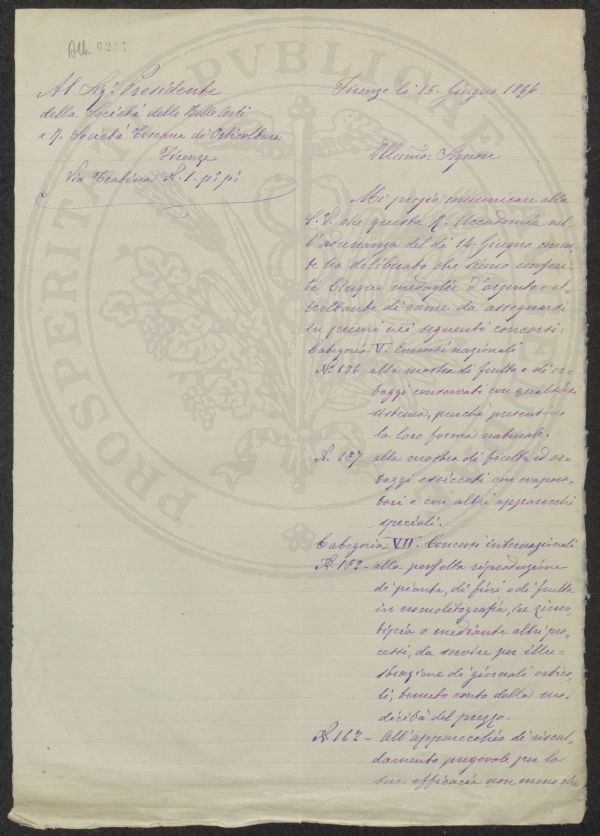 Alb. 6261
Al Sig. Presidente
della Società delle Belle Arti
e R. Società Toscana di Orticultura
Firenze
Via N. 1. p° p°
Firenze li 15. Giugno 1896
Illumo: Signore
Mi pregio comunicare alla
S. V. che questa R. Accademia nel
l'adunanza del dì 14. Giugno corren
te ha deliberato che sieno conferi
te Cinque medaglie d'argento e al
trettante di rame da assegnarsi
in premi nei seguenti concorsi:
Categoria V. Concorsi nazionali
N. 136 alla mostra di frutta e di or-
taggi conservati con qualsiasi
sistema, purchè presentino
la loro forma naturale.
N. 137 alla mostra di frutta ed or-
taggi essiccati con evapora-
tori e con altri apparecchi
speciali.
Categoria VII. Concorsi internazionali
N. 152 - alla perfetta riproduzione
di piante, di fiori o di frutta
in cromolitografia, in zinco-
tipia o mediante altri pro-
cessi, da servire per illu-
strazione di giornali ortico-
li, tenuto conto della mo-
dicità del prezzo.
N. 162 - All'apparecchio di riscal-
damento pregevole per la
sua efficacia non meno che
PROSPERITATI PUBLICAE